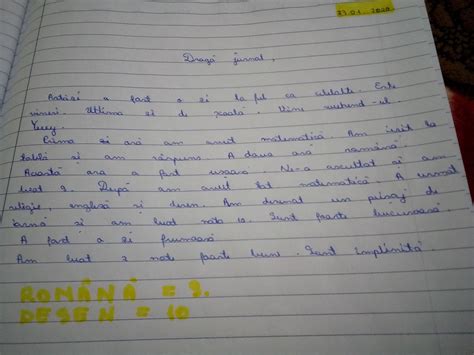 27.01.2020
Dragă jurnal,
Astăzi a fost o zi la fel ca celelalte. Este
vineri. Ultima zi de școală. Vine weekend-ul.
Yeeey.
Prima oră am avut matematică. Am ieșit la
tablă și am răspuns. A doua oră română.
Această oră a fost ușoară. Ne-a ascultat și am
luat 9. După am avut tot matematică. A urmat
religie, engleză și desen. Am desenat un peisaj de
iarnă și am luat nota 10. Sunt foarte bucuroasă.
A fost o zi frumoasă
Am luat 2 note foarte bune. Sunt împlinită
ROMÂNĂ = 9.
DESEN = 10